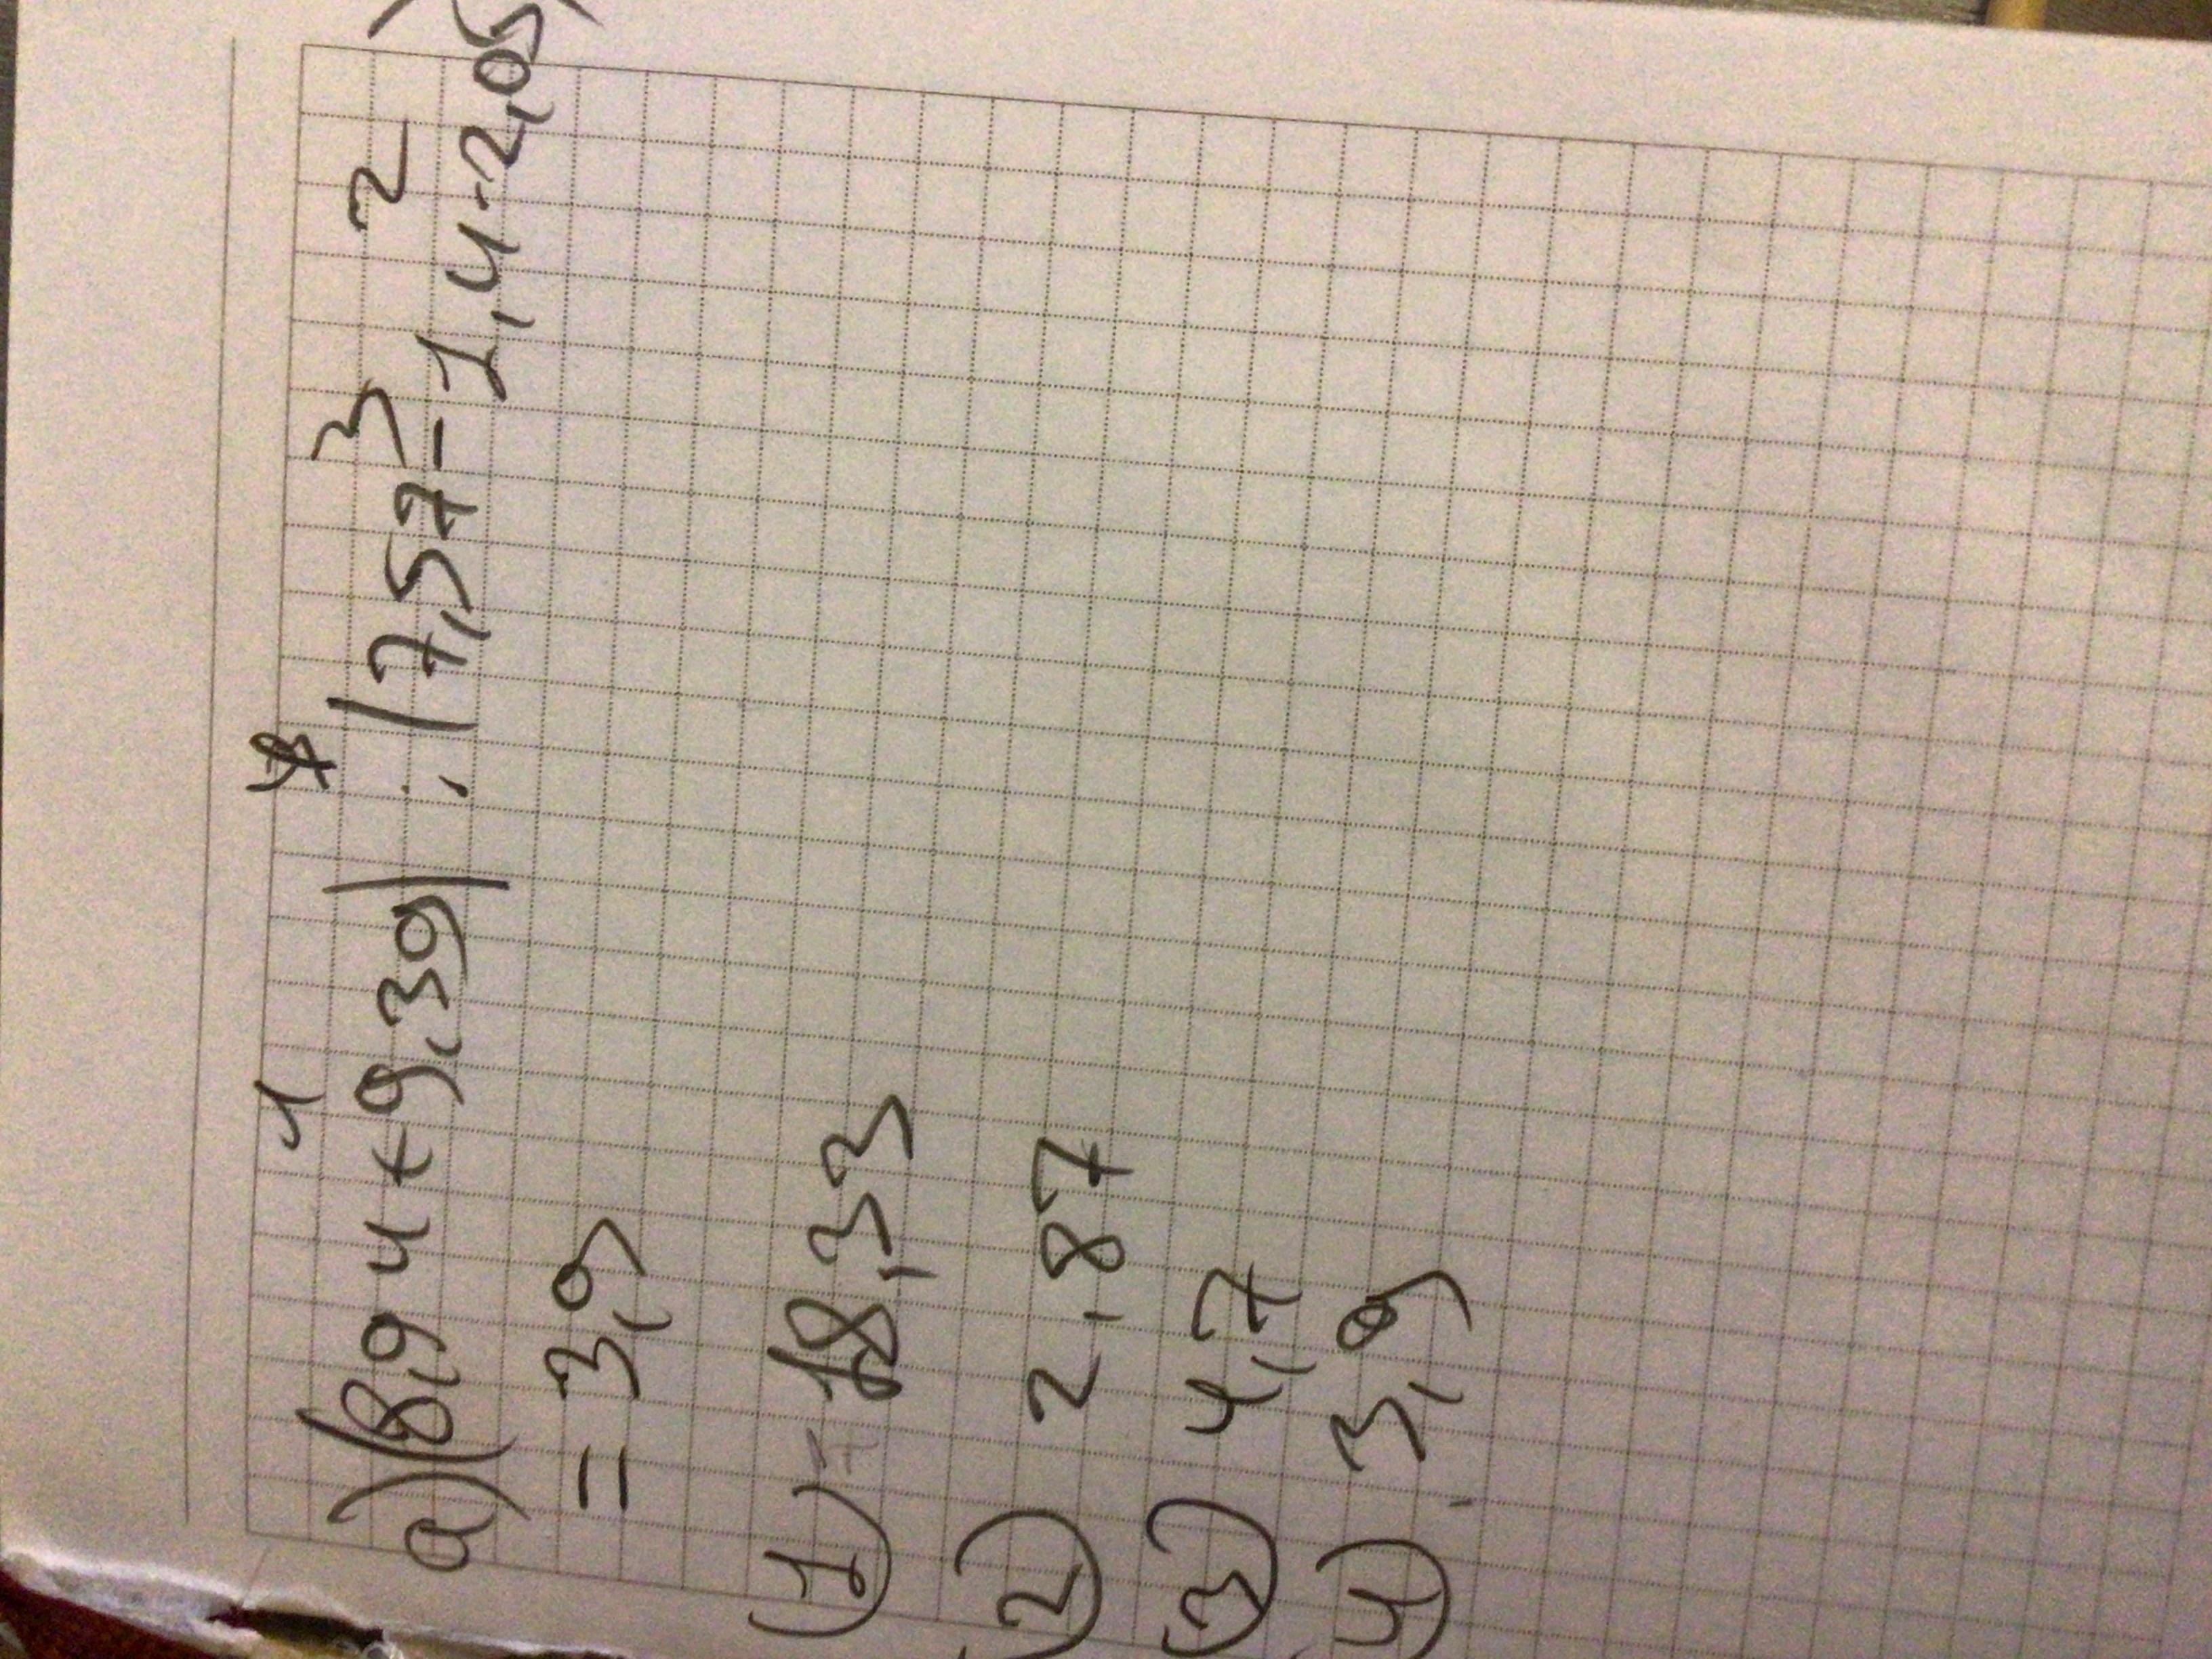 1 4 3 2
а) (8,94 + 9,39) : (7,57 - 1,4 · 2,05)
= 3,9
1) 18,33
2) 2,87
3) 4,7
4) 3,9